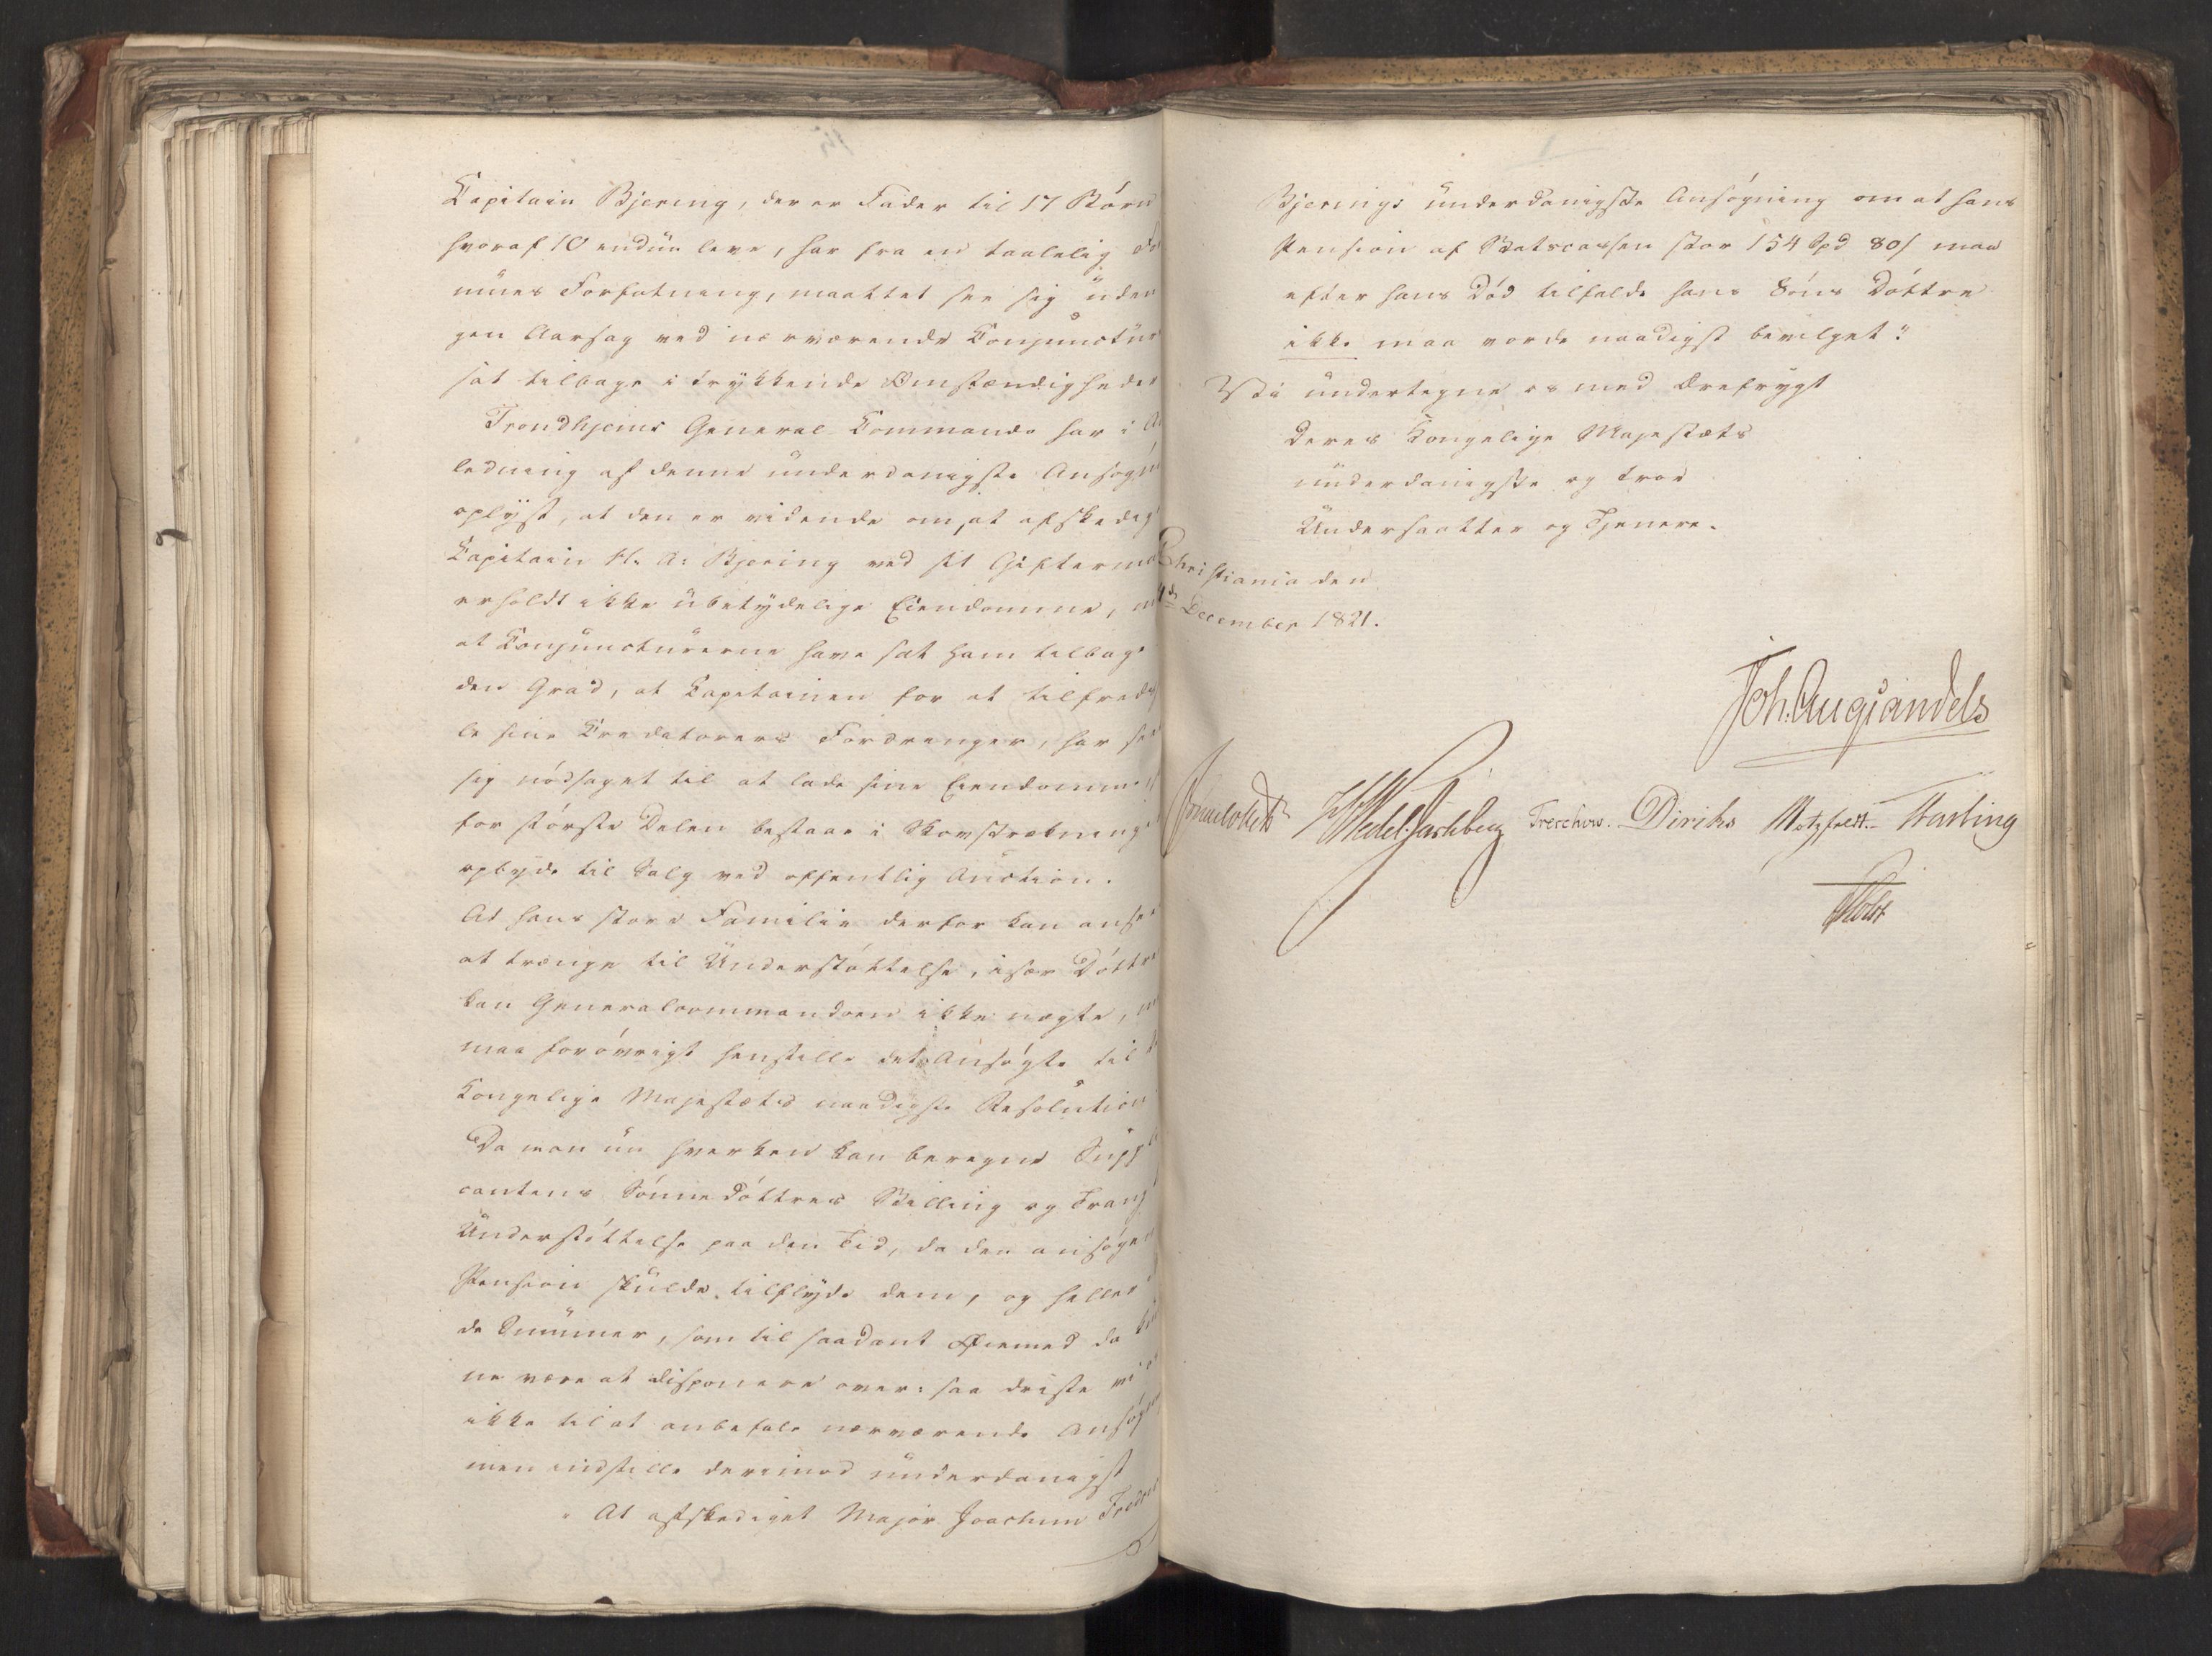 Capitain Bjering, der er Fader til 17 Börn
hvoraf 10 endnu leve, har fra en taalelig
mues Forfatning, maattet see sig uden
gen Aarsag ved nærværende Conjunctur
sat tilbage i trykkende Omstændigheder
Trondhjems General Commando har i
ledning af denne underdanigste Ansøgn
oplyst, at den er vidende om, at afskediget
Capitain H. A. Bjering ved sit Gifterm
erholdt ikke ubetydelige Eiendomme,
at Conjuncturerne have sat ham tilbage
den Grad, at Capitainen for at tilfreds
le sine Creditorers Fordringer, har see
sig nødsaget til at lade sine Eiendomme
for største Delen bestaae i Skovstrækning
opbyde til Salg ved offentlig Auction.
At hans store Familie derfor kan ansee
at trænge til Understøttelse, især Döttre
kan Generalcommandoen ikke nægte,
maa forøvrigt henstille det Ansøgte til
Kongelige Majestæts naadigste Resolution
Da man nu hverken kan beregne Suppli
cantens Sönnedöttres Stilling og Trang
Understøttelse paa den Tid, da den ansøgte
Pension skulde tilflyde dem, og heller
de Summer, som til saadant Øiemed da
ne være at disponere over: saa driste vi
ikke til at anbefale nærværende Ansøgn
men indstille derimod underdanigst
" At afskediget Major Joachim Fredrik
Bjerings underdanigste Ansøgning om at hans
Pension af Statscassen stor 154 Spd 80 s maa
efter hans Död tilfalde hans Söns Döttre
ikke maa vorde naadigst bevilget."
Vi undertegne os med Ærefrygt
Deres Kongelige Majestæts
underdanigste og troe
Undersaatter og Tjenere.
Christiania den
December 1821.
Joh. Aug. Sandels
HWedel Jarlsberg Treschow. Diriks Motzfeldt. Fasting
Holst